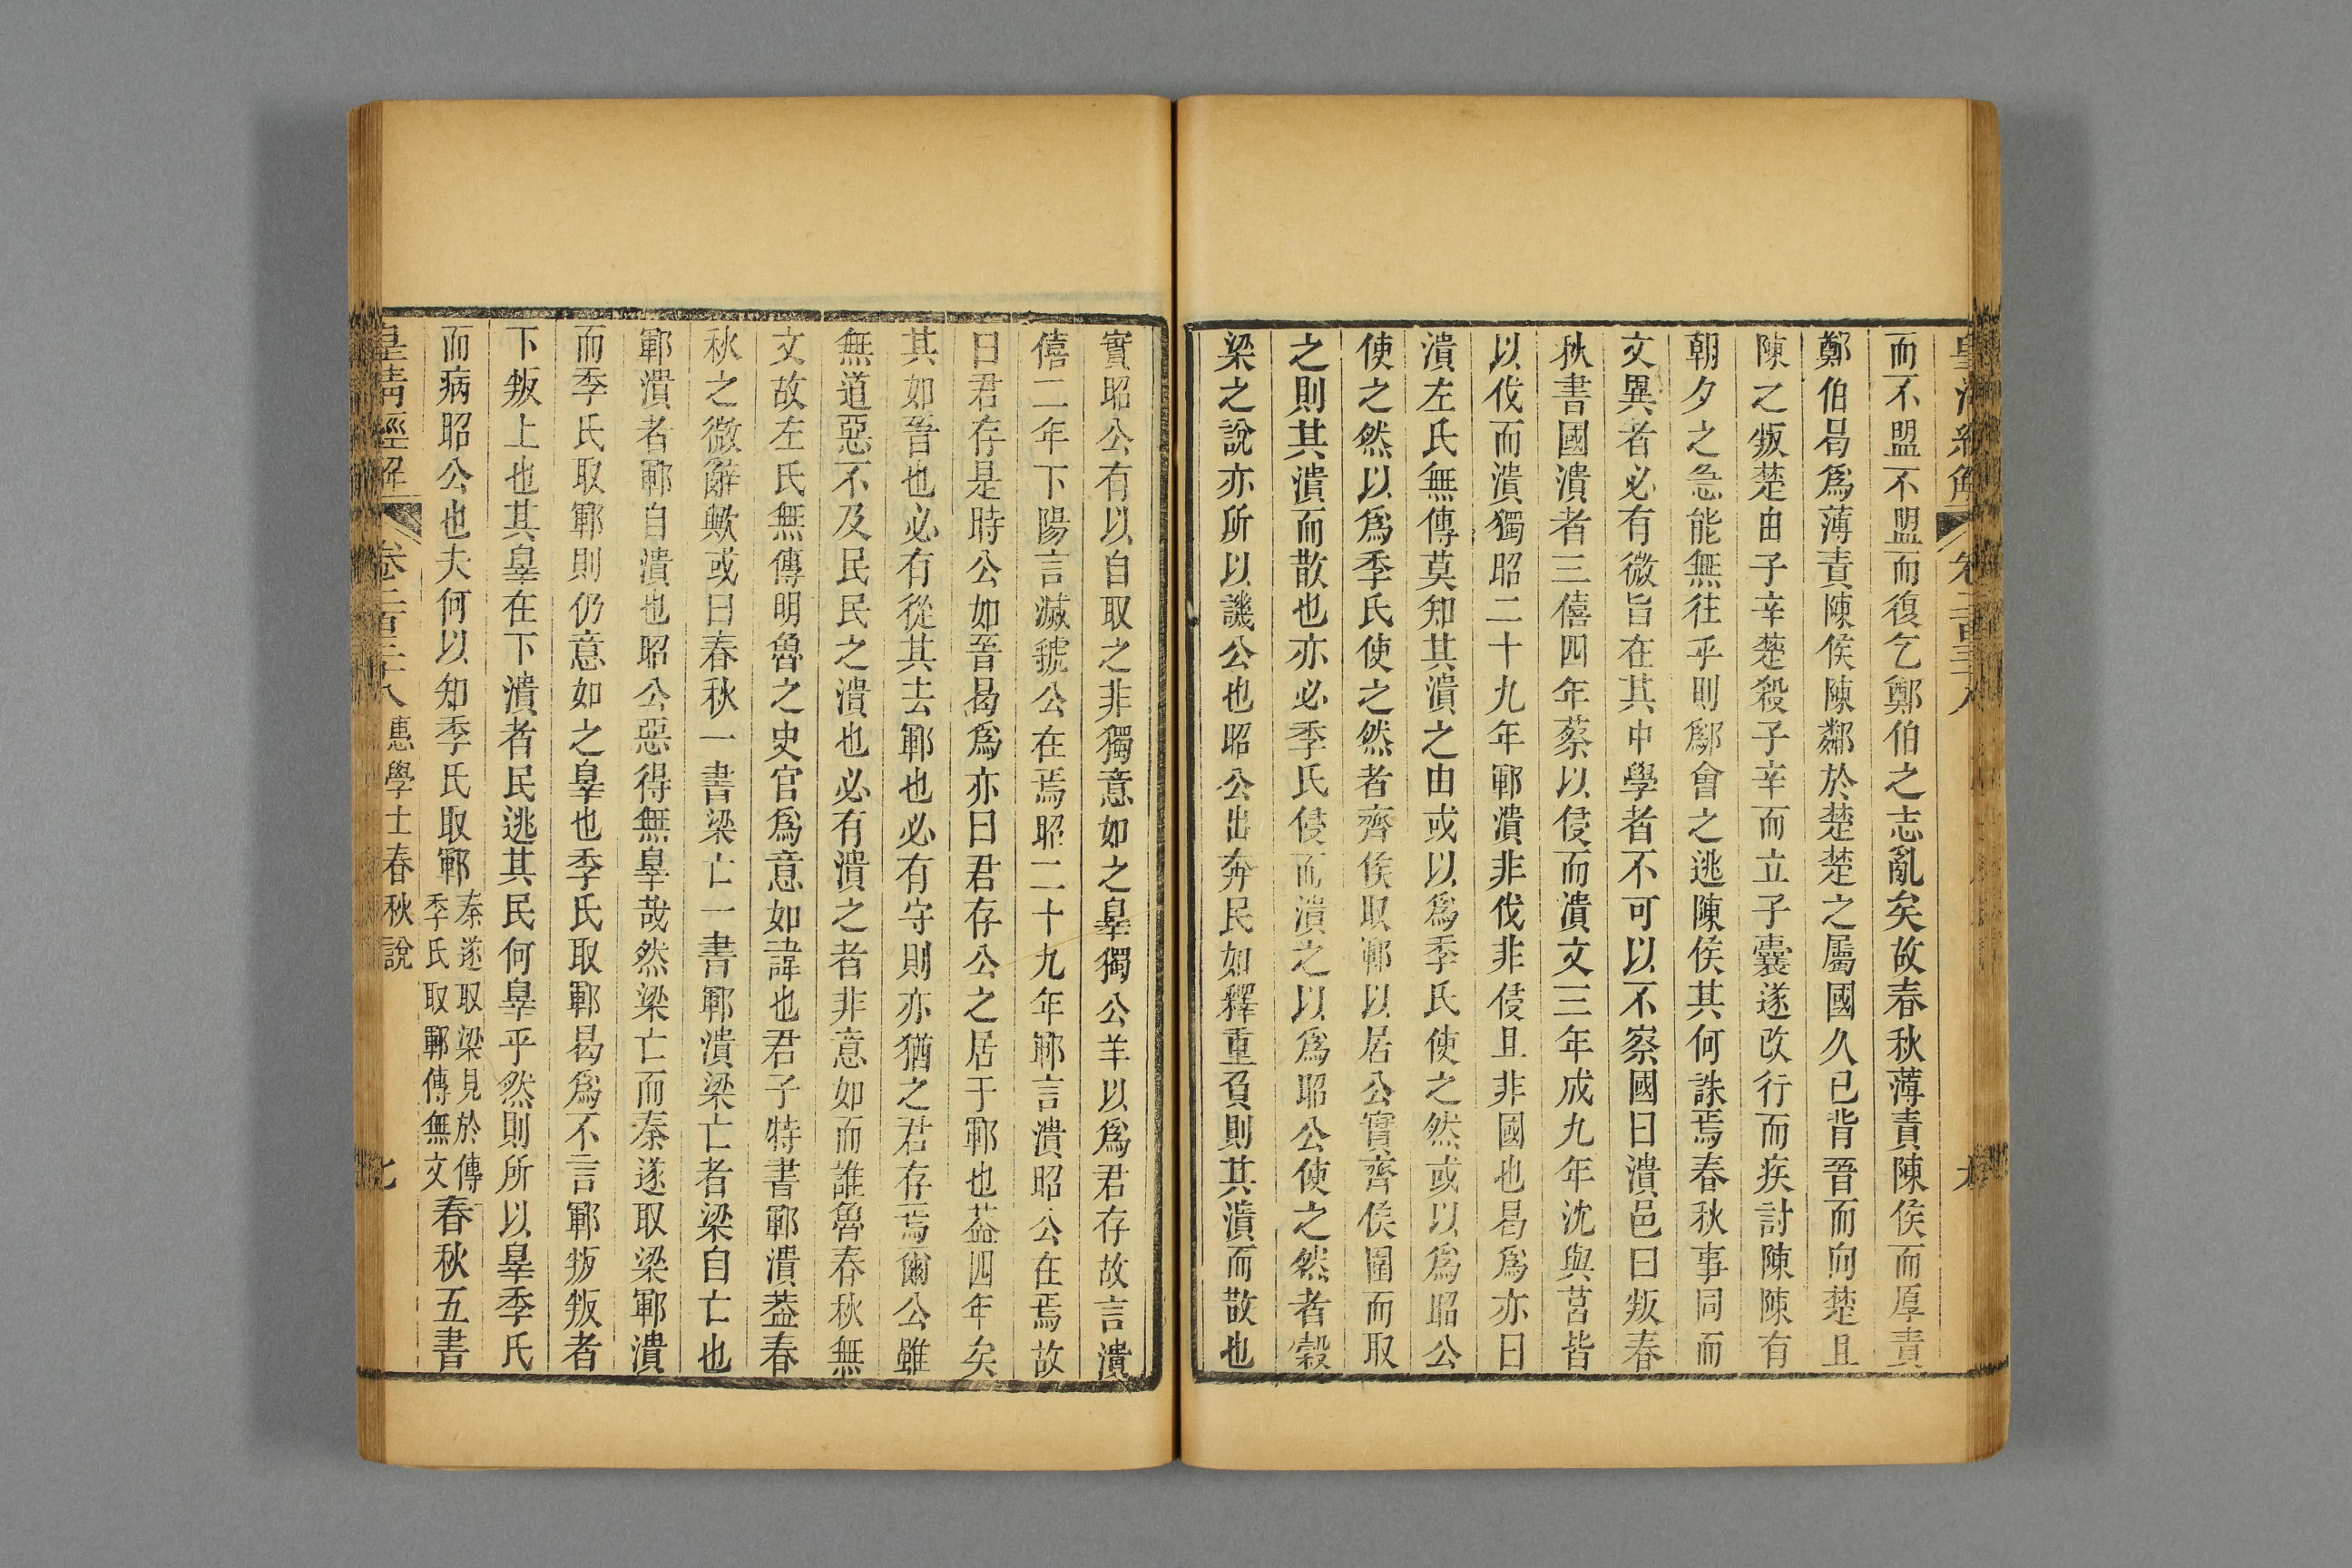 而不盟不盟而復乞鄭伯之志亂矣故春秋薄責陳侯而厚責
鄭伯曷爲薄責陳侯陳鄰於楚楚之屬國久已背晉而向楚且
陳之叛楚由子辛楚殺子辛而立子囊遂改行而疾討陳陳有
朝夕之急能無往乎則鄬會之逃陳侯其何誅焉春秋事同而
文異者必有微旨在其中學者不可以不察國曰潰邑曰叛春
秋書國潰者三僖四年蔡以侵而潰文三年成九年沈與莒皆
以伐而潰獨昭二十九年鄆潰非伐非侵且非國也曷爲亦曰
潰左氏無傳莫知其潰之由或以爲季氏使之然或以爲昭公
使之然以爲季氏使之然者齊侯取鄆以居公實齊侯圍而取
之則其潰而散也亦必季氏侵而潰之以爲昭公使之然者穀
梁之說亦所以譏公也昭公出奔民如釋重負則其潰而散也
實昭公有以自取之非獨意如之辠獨公羊以爲君存故言潰
僖二年下陽言滅虢公在焉昭二十九年鄆言潰昭公在焉故
曰君存是時公如晉曷爲亦曰君存公之居于鄆也葢四年矣
其如晉也必有從其去鄆也必有守則亦猶之君存焉爾公雖
無道惡不及民民之潰也必有潰之者非意如而誰魯春秋無
文故左氏無傳明魯之史官爲意如諱也君子特書鄆潰葢春
秋之微辭歟或曰春秋一書梁亡一書鄆潰梁亡者梁自亡也
鄆潰者鄆自潰也昭公惡得無辠哉然梁亡而秦遂取梁鄆潰
而季氏取鄆則仍意如之辠也季氏取鄆曷爲不言鄆叛叛者
下叛上也其辠在下潰者民逃其民何辠乎然則所以辠季氏
而病昭公也夫何以知季氏取鄆秦遂取梁見於傳季氏取鄆傳無文春秋五書
皇清經解 卷二百三十八 惠學士春秋說